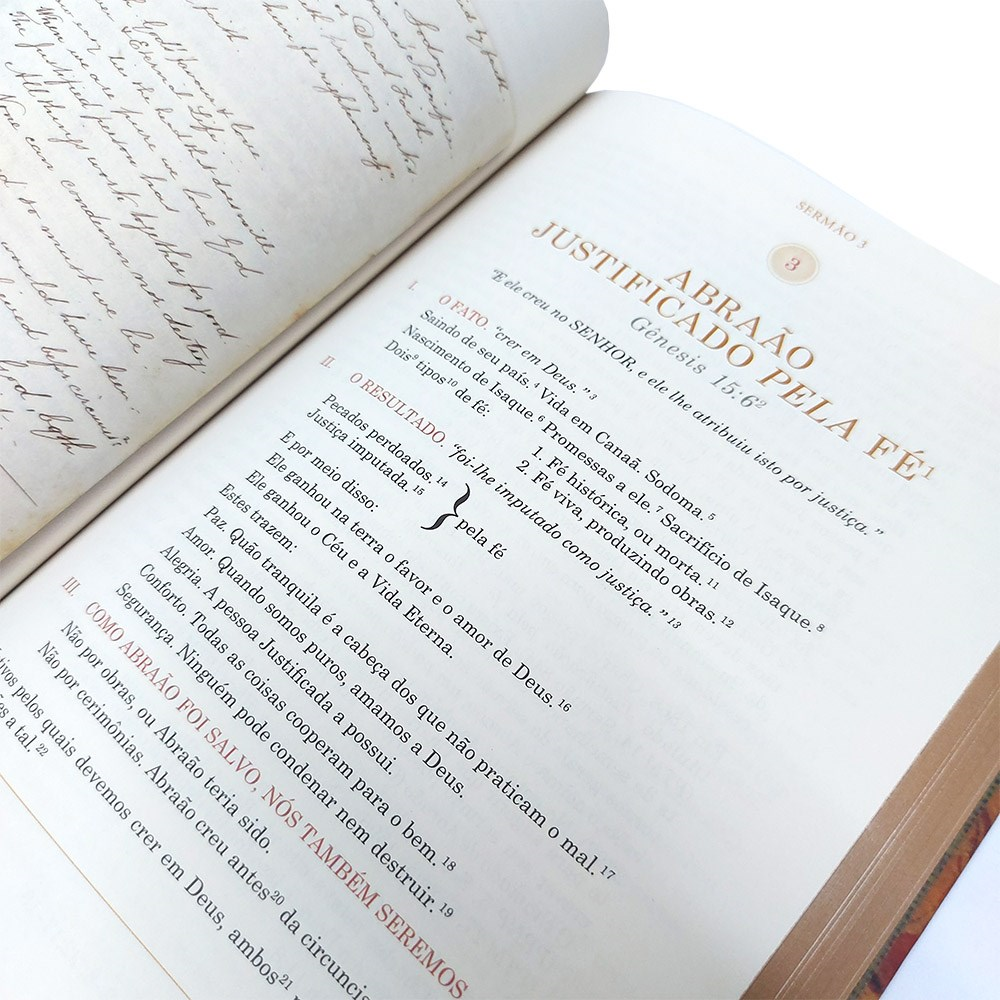 by faith.
God's
Dead Faith
him for righteousness."
God's favour & love
& Eternal Life.
When we are pure we love God
The Justified person has
All things work together for good
None can condemn nor destroy
would have been.
God, both
SERMÃO 3
3
ABRAÃO
JUSTIFICADO PELA FÉ¹
Gênesis 15:6²
"E ele creu no SENHOR, e ele lhe atribuiu isto por justiça."
I. O FATO. "crer em Deus." ³
Saindo de seu país. ⁴ Vida em Canaã. Sodoma. ⁵
Nascimento de Isaque. ⁶ Promessas a ele. ⁷ Sacrifício de Isaque. ⁸
Dois⁹ tipos¹⁰ de fé: 1. Fé histórica, ou morta. ¹¹
2. Fé viva, produzindo obras. ¹²
II. O RESULTADO. "foi-lhe imputado como justiça." ¹³
Pecados perdoados. ¹⁴
Justiça imputada. ¹⁵ } pela fé
E por meio disso:
Ele ganhou na terra o favor e o amor de Deus. ¹⁶
Ele ganhou o Céu e a Vida Eterna.
Estes trazem:
Paz. Quão tranquila é a cabeça dos que não praticam o mal. ¹⁷
Amor. Quando somos puros, amamos a Deus.
Alegria. A pessoa Justificada a possui.
Conforto. Todas as coisas cooperam para o bem. ¹⁸
Segurança. Ninguém pode condenar nem destruir. ¹⁹
III. COMO ABRAÃO FOI SALVO, NÓS TAMBÉM SEREMOS
Não por obras, ou Abraão teria sido.
Não por cerimônias. Abraão creu antes²⁰ da circuncis
tivos pelos quais devemos crer em Deus, ambos²¹
es a tal. ²²